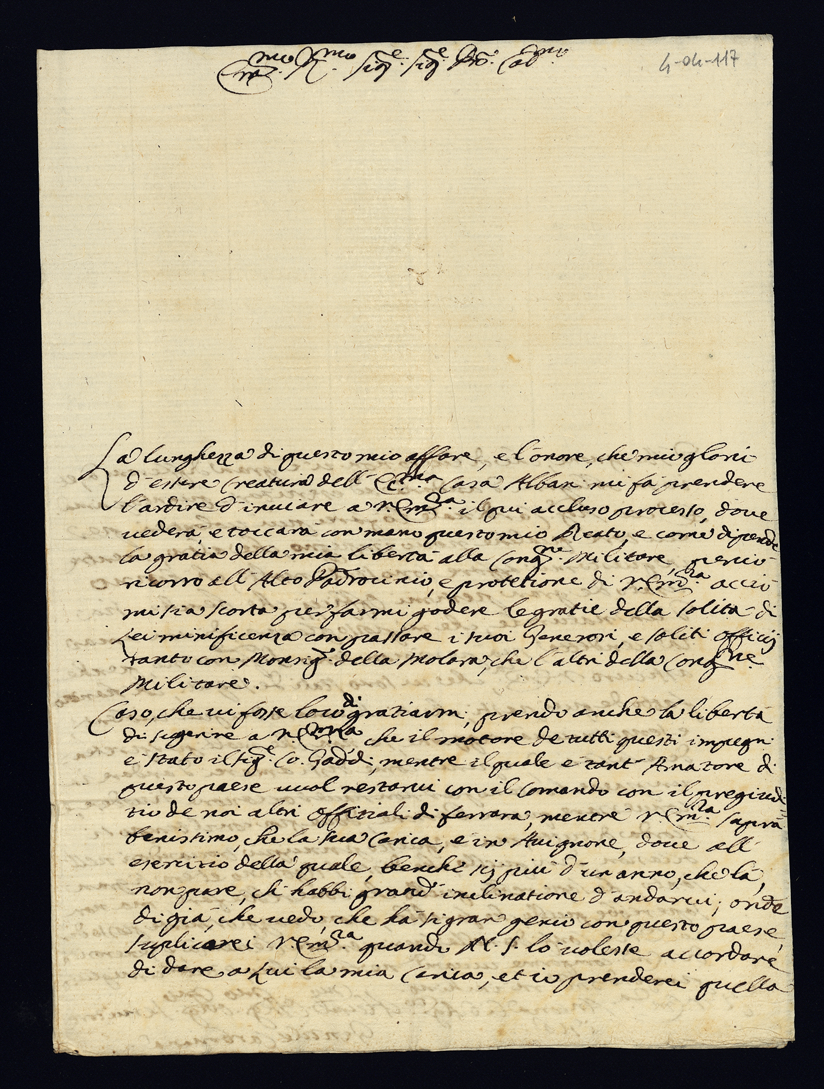 Em.mo R.mo Sig.e Sig.e P.ro Col.mo
4-04-117
La lunghezza di questo mio affare, e l'onore, che mi glorio
d'essere Creatura dell' Ecc.ma Casa Albani mi fa prendere
l'ardire d'inviare a V. Em.za il qui accluso processo, dove
vederà, e toccarà con mano questo mio Reato, e come dipende
la gratia della mia libertà alla Cong.ne Militare, perciò
ricorro all' Alto Padrocinio, e protetione di V. Em.za acciò
mi sia scorta per farmi godere le gratie della solita di
Lei minificenza con passare i suoi Generosi, e soliti officij
tanto con Monsig.r della Molara, che l'altri della Cong.ne
Militare.
Caso, che vi fosse loco di gratiarmi, prendo anche la libertà
di sugerire a V. Em.za che il motore de tutti questi impegni
è stato il Sig.e Co. Gaddi, mentre il quale è tant' Amatore di
questo paese vuol restarvi con il Comando con il pregiudi-
tio de noi altri offitiali di ferrara, mentre V. Em.za saprà
benissimo, che la sua Carica, è in Avignone, dove all'
esercitio della quale, benchè sij più d'un anno, che là,
non pare, ch habbi grand' inclinatione d'andarvi, onde
di già, che vedo, che ha sì gran genio con questo paese
suplicarei V. Em.za quando N. S. lo volesse accordare
di dare a Lui la mia Carica, et io prenderei quella